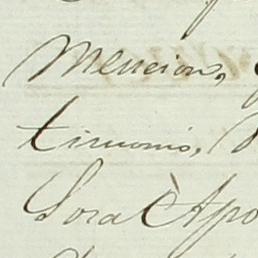 Mencion,
timonio,
Sora è Apo